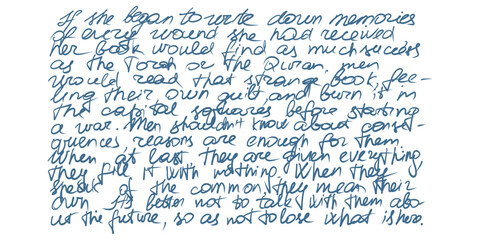 If she began to write down memories
of every wound she had received
her book would find as much success
as the Torah or the Quran, men
would read that strange book, fee-
ling their own guilt and burn it in
the capital squares before starting
a war. Men shouldn't know about conse-
quences, reasons are enough for them.
When at last they are given everything,
they fill it with nothing. When they
speak of the common, they mean their
own. It's better not to talk with them abo-
ut the future, so as not to lose what is here.